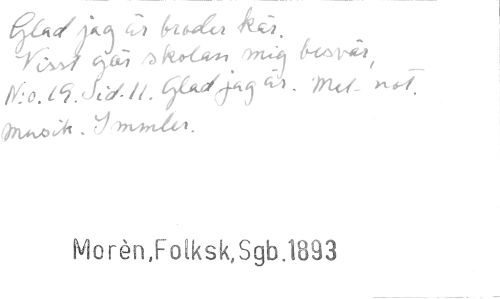 Glad jag är broder kär.
Visst gör skolan mig besvär,
N:o. 19. Sid. 11. Glad jag är. Mel. not.
Musik. Immler.
Morèn,Folksk,Sgb.1893